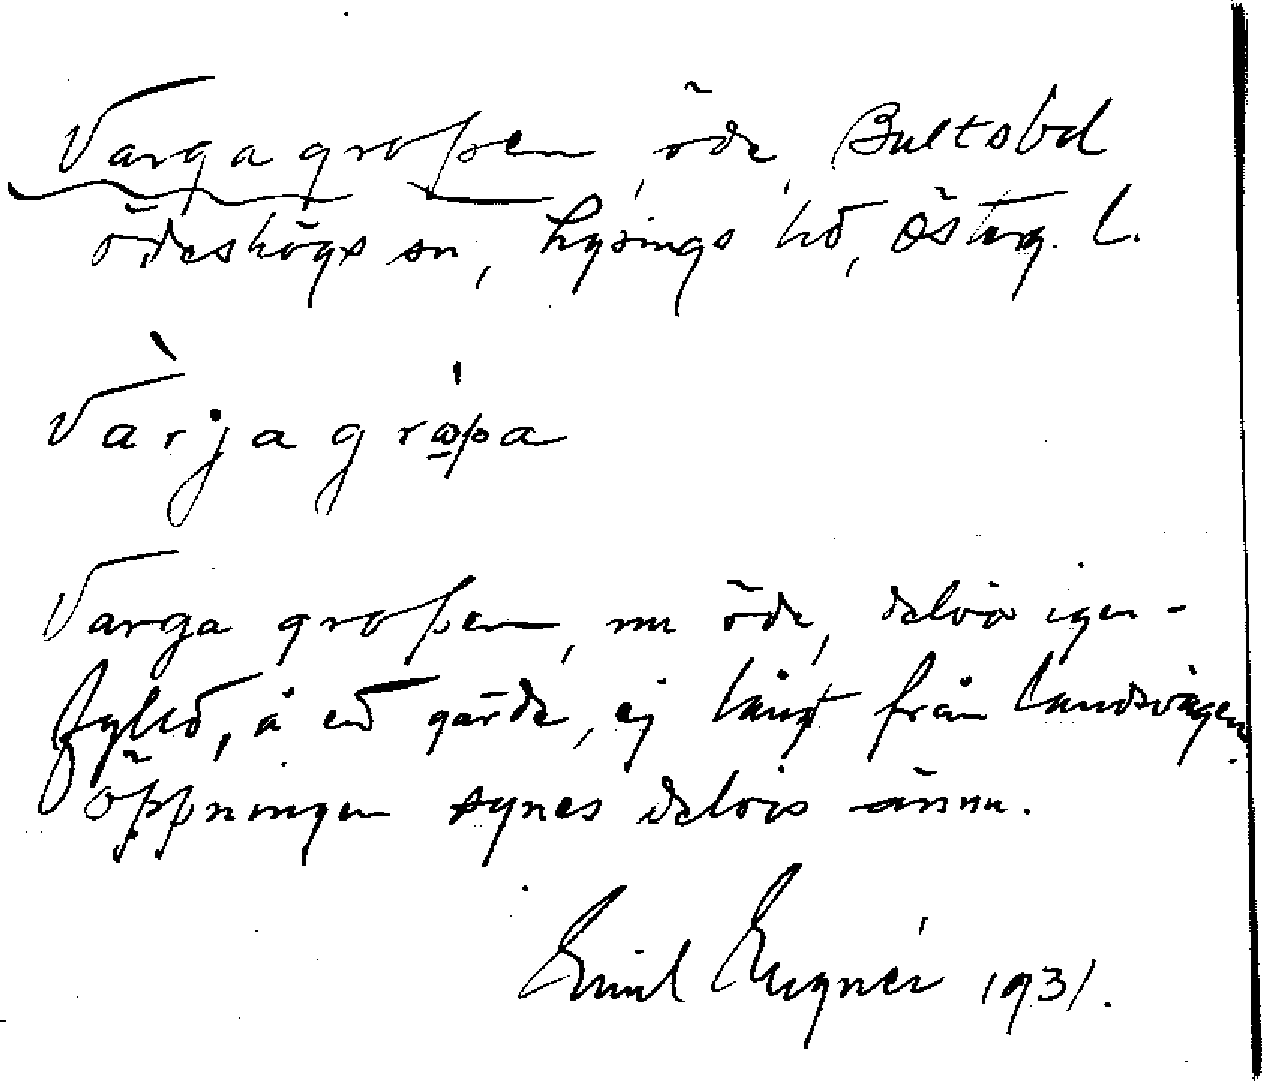 Vargagropen, öde, Bultsbol
Ödeshögs sn, Lysings hd, Österg. l.
Vàrjagrȯpa
Varga gropen, nu öde, delvis igen-
fylld, å ett gärde, ej långt från landsvägen.
Öppningen synes delvis ännu.
Emil 1931.